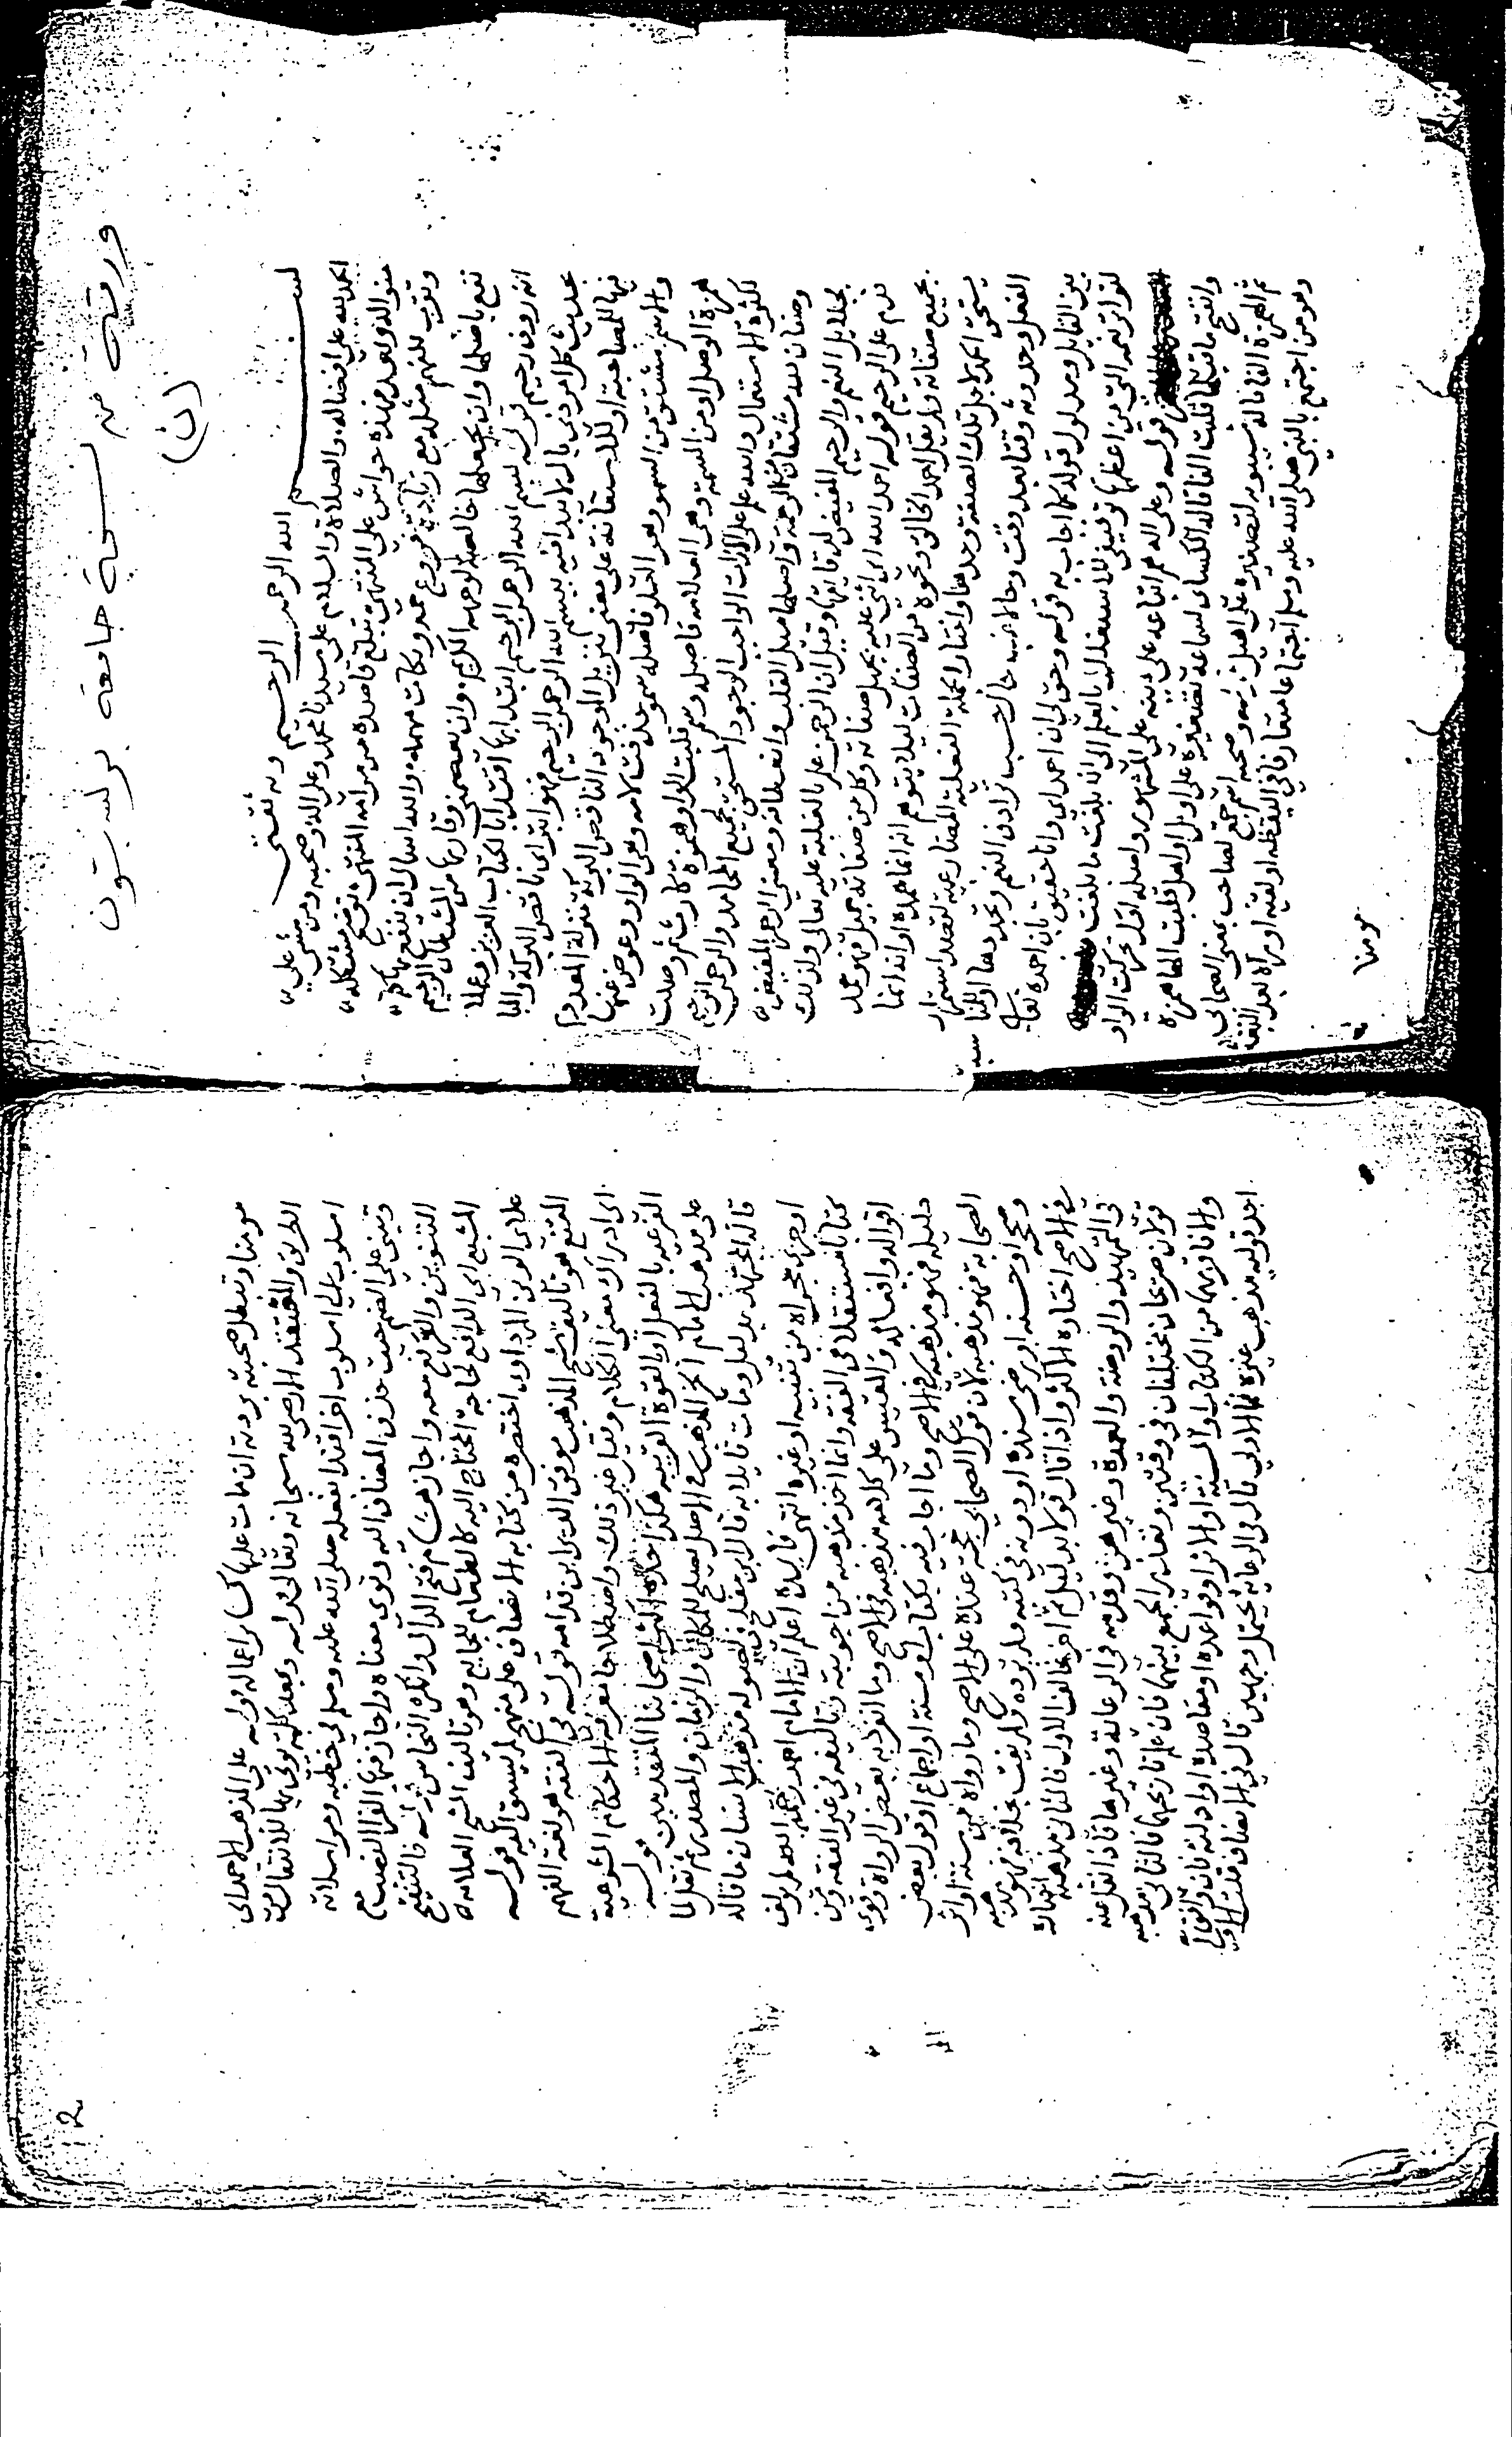 ورقة من نسخة جامعة برنستون
(ن)
بسم الله الرحمن الرحيم وبه ثقتي
الحمد لله على افضاله والصلاة والسلام على سيدنا محمد وعلى اله وصحبه ومن مشى على
منواله وبعد فهذه حواش على المنتهى تبلغ قاصده من مرامه المنتهى توضح مشكله
وتقرب للفهم مثله مع زيادة فروع وتكات مهمله والله اسال ان ينفع بها كما
نفع باصلها وان يجعلها خالصة لوجهه الكريم وان يعصمني وقاريها من الشيطان الرجيم
انه روف رحيم قوله بسم الله الرحمن الرحيم ابتدا بها اقتدا بالكتاب العزيز وعملا
بحديث كل امر ذي بال لا يبدا فيه ببسم الله الرحمن الرحيم فهو ابتر اي ناقص البركة والبا
فيها للمصاحبة او للاستعانة على معنى تنزيل الوجود الناقص البركة منزلة المعدوم
والاسم مشتق من السمو وهو العلو فاصله سمو حذفت لامه وهي الواو وعوض عنها
همزة الوصل او من السمة وهي العلامة فاصله وسم قلبت الواو همزة ثم وصلت
لكثرة الاستعمال والله علم على الذات الواجب الوجود المستحق لجميع المحامد والرحمن الرحيم
وصفان لله مشتقان من الرحمة واصلها ميل القلب وانعطافه ومعنى الرحمن المفيض
بجلايل النعم والرحيم المفيض لدقايقها وقيل ان الرحمن علم بالغلبة عليه تعالى ولذلك
قدم على الرحيم قوله احمد الله اي اثني عليه بجميل صفاته وكل من صفاته جميل فهو حمد
بجميع صفاته ولم يقل احمد الخالق ونحوه من الصفات ليلا يتوهم انه انما حمده او انه انما
يستحق الحمد لاجل تلك الصفة وحدها واختار الجملة الفعلية المضارعية لقصد استمرار
الفعل وحدوثه وقتا بعد وقت وحالا غب حال حسب ترادف النعم وتجددها
بين القايل ومدلول قوله كما اجاب به قوله وحق لي ان احمد اي وانا حقيق بان احمده تعالى
لتواتر نعمه التي من اعظمها توفيقي للاشتغال بالعلم الى ان بلغت ما بلغت
قوله وعلى اله هم اتباعه على دينه على المشهور واصله اول تحركت الواو
وانفتح ما قبلها قلبت الفا قاله الكساي لسماعه تصغيره على اويل او اهل قلبت الها همزة
ثم الهمزة الفا قاله سيبويه لتصغيره على اهيل قوله وصحبه اسم جمع لصاحب بمعنى الصحابي
وهو من اجتمع بالنبي صلى الله عليه وسلم اجتماعا متعارفا في اليقظة او لقيه او راه بعد البعثة
مومنا
2
مومنا وتبطل صحبته بردته ان مات عليها كساير اعماله قوله على المذهب الاحمد اي
الطريق والمعتقد المرضي لله سبحانه وتعالى قوله وبعد كلمة يوتى بها للانتقال من
اسلوب الى اسلوب اخر اقتدا بفعله صلى الله عليه وسلم في خطبه ومراسلاته
وتبنى على الضم حيث حذف المضاف اليه ونوي معناه واجاز فيها الفرا النصب مع
التنوين والرفع معه واجاز هشام فتح الدال وانكره النحاس قوله فالتنقيح
المشبع اي الدافع لحاجة المحتاج اليه كالطعام للجايع وهو تاليف الشيخ العلامة
علاي الدين المرداوي اختصره من كتابه الانصاف على منهج لم يسبق اليه قوله
المقنع هو تاليف شيخ المذهب موفق الدين ابن قدامة قوله في الفقه هو لغة الفهم
اي ادراك معنى الكلام وقيل غير ذلك واصطلاحا معرفة الاحكام الشرعية
الفرعية بالفعل او القوة القريبة هكذا حده اكثر اصحابنا المتقدمين قوله
على مذهب الامام الخ المذهب في الاصل يصلح للمكان والزمان والمصدر ثم نقل لما
قاله المجتهد بدليل ومات قايلا به قال ابن مفلح في اصوله مذهب الانسان ما قاله
او جرى مجراه من تنبيه او غيره انتهى فايدة اعلم ان الامام احمد رحمه الله لم يولف
كتابا مستقلا في الفقه وانما اخذ مذهبه من اجوبته وتاليفه في غير الفقه ومن
اقواله وافعاله والمقيس على كلامه مذهبه في الاصح وما انفرد به بعض الرواة وقوي
دليله فهو مذهبه في الاصح وما اجاب فيه بكتاب او سنة او اجماع او قول بعض
الصحابة فهو مذهبه لان قول الصحابي حجة عنده على الاصح وما رواه من سنة او اثر
وصححه او حسنه او رضي سنده او دونه في كتبه ولم يرده ولم يفت بخلافه فهو مذهبه
في الاصح اختاره الاكثر واذا قال قولا بدليل ثم اخر خالف الاول فالثاني مذهبه
في التمهيد والروضة والعمدة وغيرهن وقدمه في الرعاية وغيرها فاذا نقل عنه
قولان صريحان مختلفان في وقتين وتعذر الجمع بينهما فان علم تاريخهما فالثاني مذهبه
والا فاقربهما من الكتاب او السنة او الاثر او قواعده او مقاصده او ادلته
قوله مذهب غيره فما الاولى قال في الرعاية يحتمل وجهين قال في الانصاف قلت الاولى